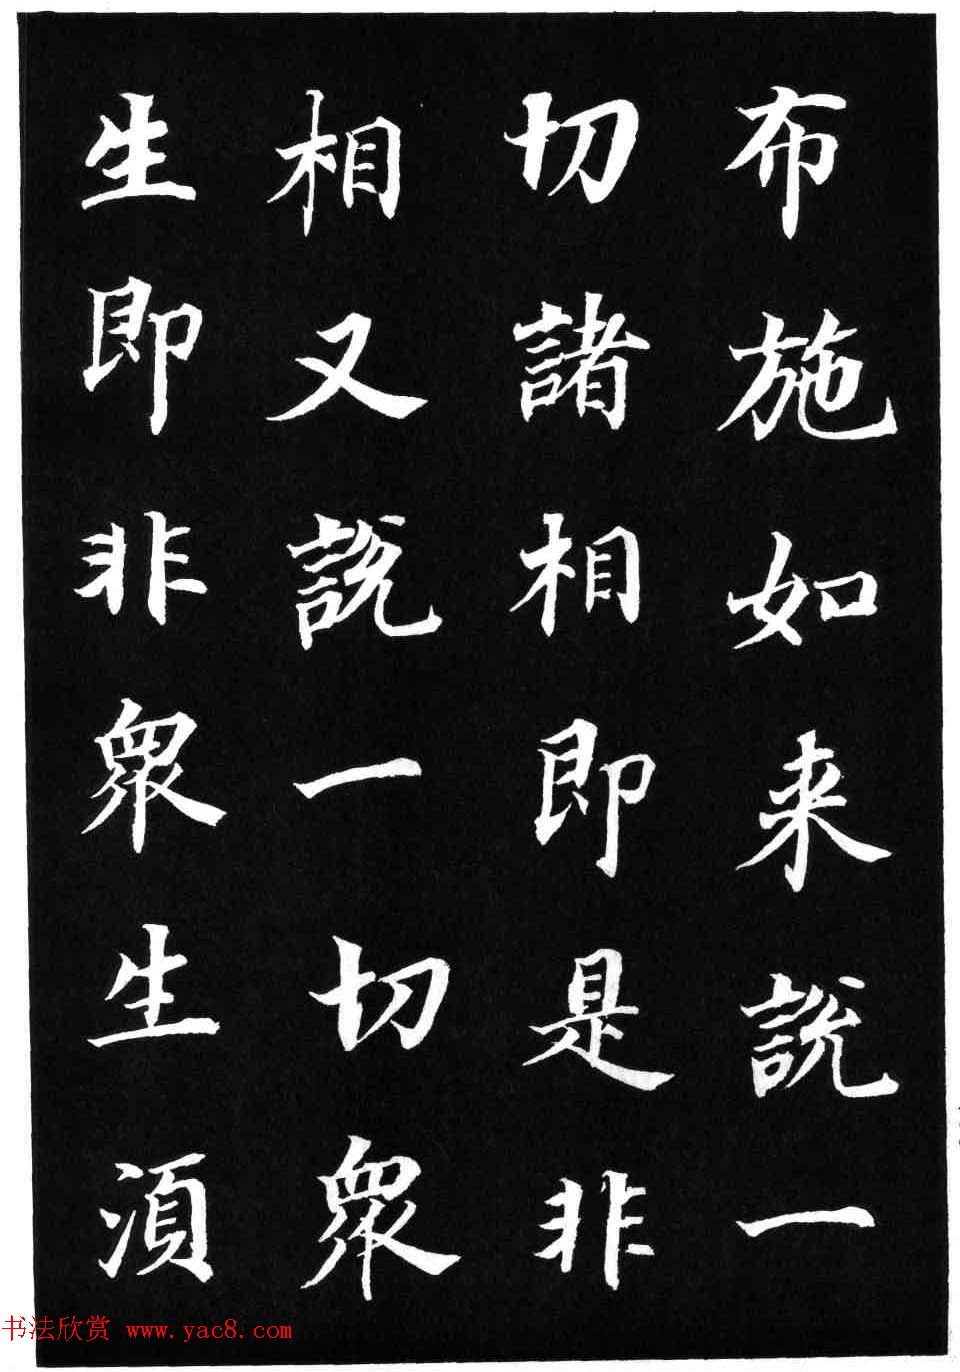 布施如来說一
切諸相即是非
相又說一切衆
生即非衆生須
书法欣赏 www.yac8.com